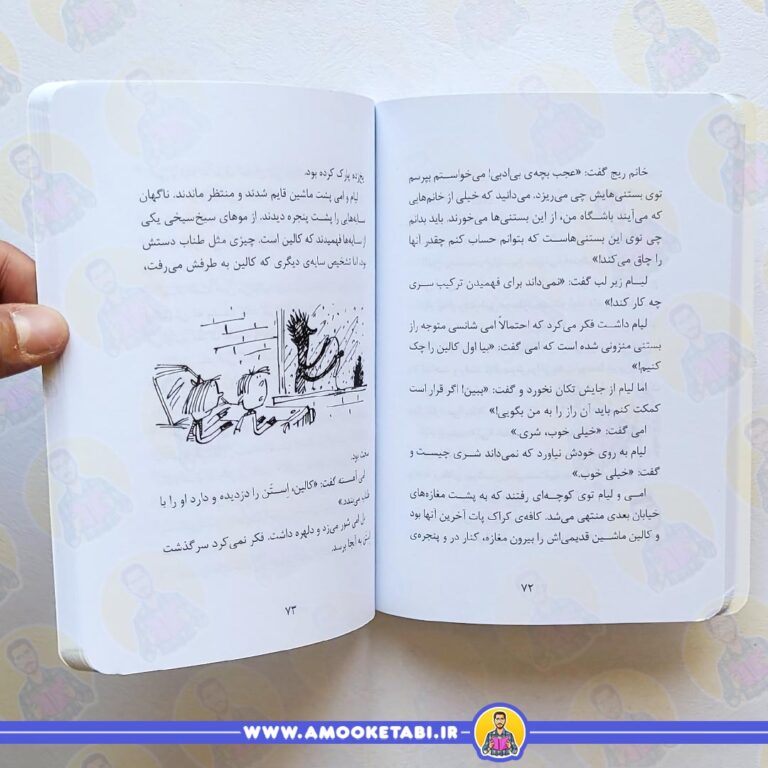 خانم ریج گفت: «عجب بچه‌ی بی‌ادبی! می‌خواستم بپرسم
توی بستنی‌هایش چی می‌ریزد. می‌دانید که خیلی از خانم‌هایی
که می‌آیند باشگاه من، از این بستنی‌ها می‌خورند. باید بدانم
چی توی این بستنی‌هاست که بتوانم حساب کنم چقدر آنها
را چاق می‌کند!»
لیام زیر لب گفت: «نمی‌داند برای فهمیدن ترکیب سری
چه کار کند!»
لیام داشت فکر می‌کرد که احتمالاً امی شانسی متوجه راز
بستنی منزونی شده است که امی گفت: «بیا اول کالین را چک
کنیم!»
اما لیام از جایش تکان نخورد و گفت: «ببین! اگر قرار است
کمکت کنم باید آن راز را به من بگویی!»
امی گفت: «خیلی خوب، شری.»
لیام به روی خودش نیاورد که نمی‌داند شری چیست و
گفت: «خیلی خوب.»
امی و لیام توی کوچه‌ای رفتند که به پشت مغازه‌های
خیابان بعدی منتهی می‌شد. کافه‌ی کراک پات آخرین آنها بود
و کالین ماشین قدیمی‌اش را بیرون مغازه، کنار در و پنجره‌ی
۷۲
یخ‌زده پارک کرده بود.
لیام و امی پشت ماشین قایم شدند و منتظر ماندند. ناگهان
سایه‌هایی را پشت پنجره دیدند. از موهای سیخ‌سیخی یکی
از سایه‌ها فهمیدند که کالین است. چیزی مثل طناب دستش
بود، اما تشخیص سایه‌ی دیگری که کالین به طرفش می‌رفت،
سخت بود.
امی آهسته گفت: «کالین، استَن را دزدیده و دارد او را با
طناب می‌بندد!»
دل امی شور می‌زد و دلهره داشت. فکر نمی‌کرد سرگذشت
به آنجا برسد.
۷۳
WWW.AMOOKETABI.IR